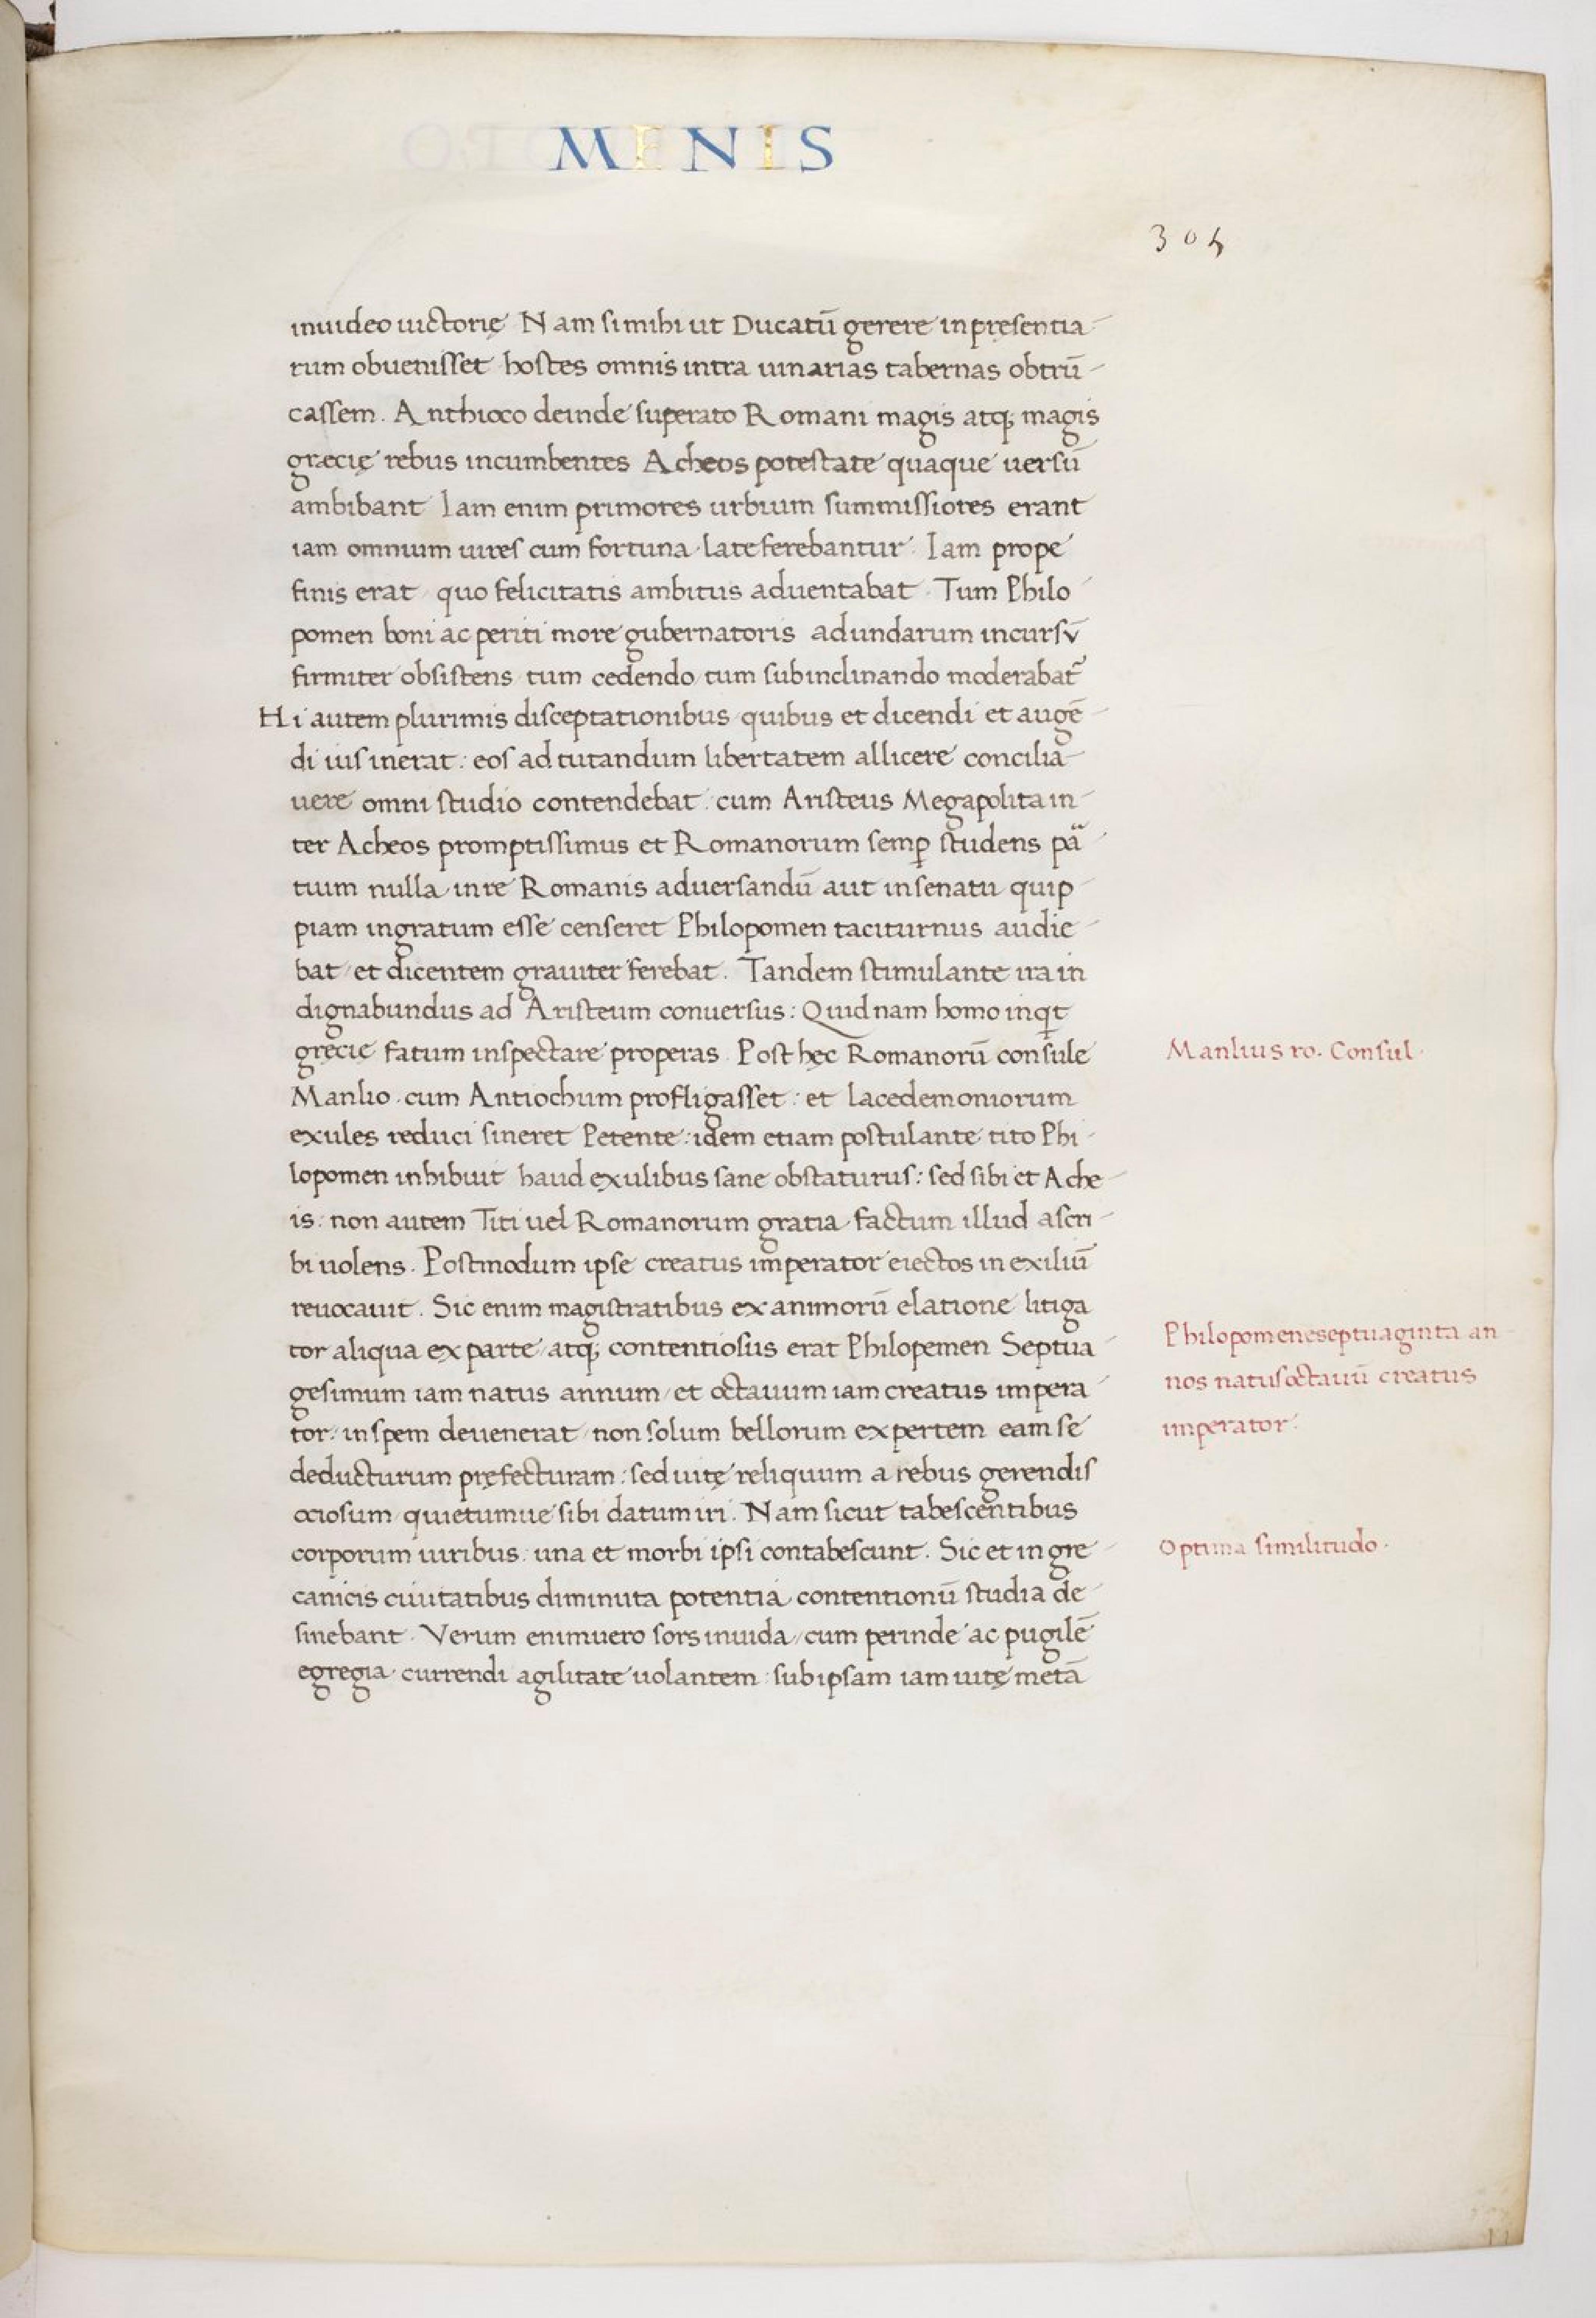 MENIS
304
inuideo uictorię N am si mihi ut Ducatū gerere in pręsentia-
rum obuenisset hostes omnis intra uinarias tabernas obtrū-
cassem. Anthioco deinde superato Romani magis atq; magis
græcię rebus incumbentes Acheos potestate quaque uersū
ambibant Iam enim primores urbium summissiores erant
iam omnium uires cum fortuna late ferebantur. Iam prope
finis erat quo felicitatis ambitus aduentabat. Tum Philo-
pomen boni ac periti more gubernatoris ad undarum incursū
firmiter obsistens tum cedendo tum subinclinando moderabat᷑
Hi autem plurimis disceptationibus quibus et dicendi et augē-
di uis inerat: eos ad tutandum libertatem allicere concilia-
uere omni studio contendebat: cum Aristeus Megapolita in-
ter Acheos promptissimus et Romanorum semꝑ studens pa̋-
tium nulla in re Romanis aduersandū aut in senatu quip-
piam ingratum esse censeret Philopomen taciturnus audie-
bat et dicentem grauiter ferebat. Tandem stimulante ira in
dignabundus ad Aristeum conuersus: Quidnam homo inqt
gręcię fatum inspectare properas. Post hęc Romanorū consule
Manlio cum Antiochum profligasset: et lacedemoniorum
exules reduci sineret Petente: idem etiam postulante tito Phi-
lopomen inhibuit haud exulibus sane obstaturus: sed sibi et Ache-
is: non autem Titi uel Romanorum gratia factum illud ascri-
bi uolens. Postmodum ipse creatus imperator eiectos in exiliū
reuocauit. Sic enim magistratibus ex animorū elatione litiga
tor aliqua ex parte atq; contentiosus erat Philopemen Septua-
gesimum iam natus annum et octauum iam creatus impera-
tor: in spem deuenerat non solum bellorum expertem eam se
deducturum pręfecturam: sed uitę reliquum a rebus gerendis
ociosum quietumue sibi datum iri. Nam sicut tabescentibus
corporum uiribus: una et morbi ipsi contabescunt. Sic et in gre-
canicis ciuitatibus diminuta potentia contentionū studia de-
sinebant. Verum enimuero sors inuida cum perinde ac pugilē
egregia currendi agilitate uolantem: sub ipsam iam uitę metā
Manlius ro. Consul.
Philopomenes septuaginta an-
nos natus octauū creatus
imperator.
Optima similitudo.